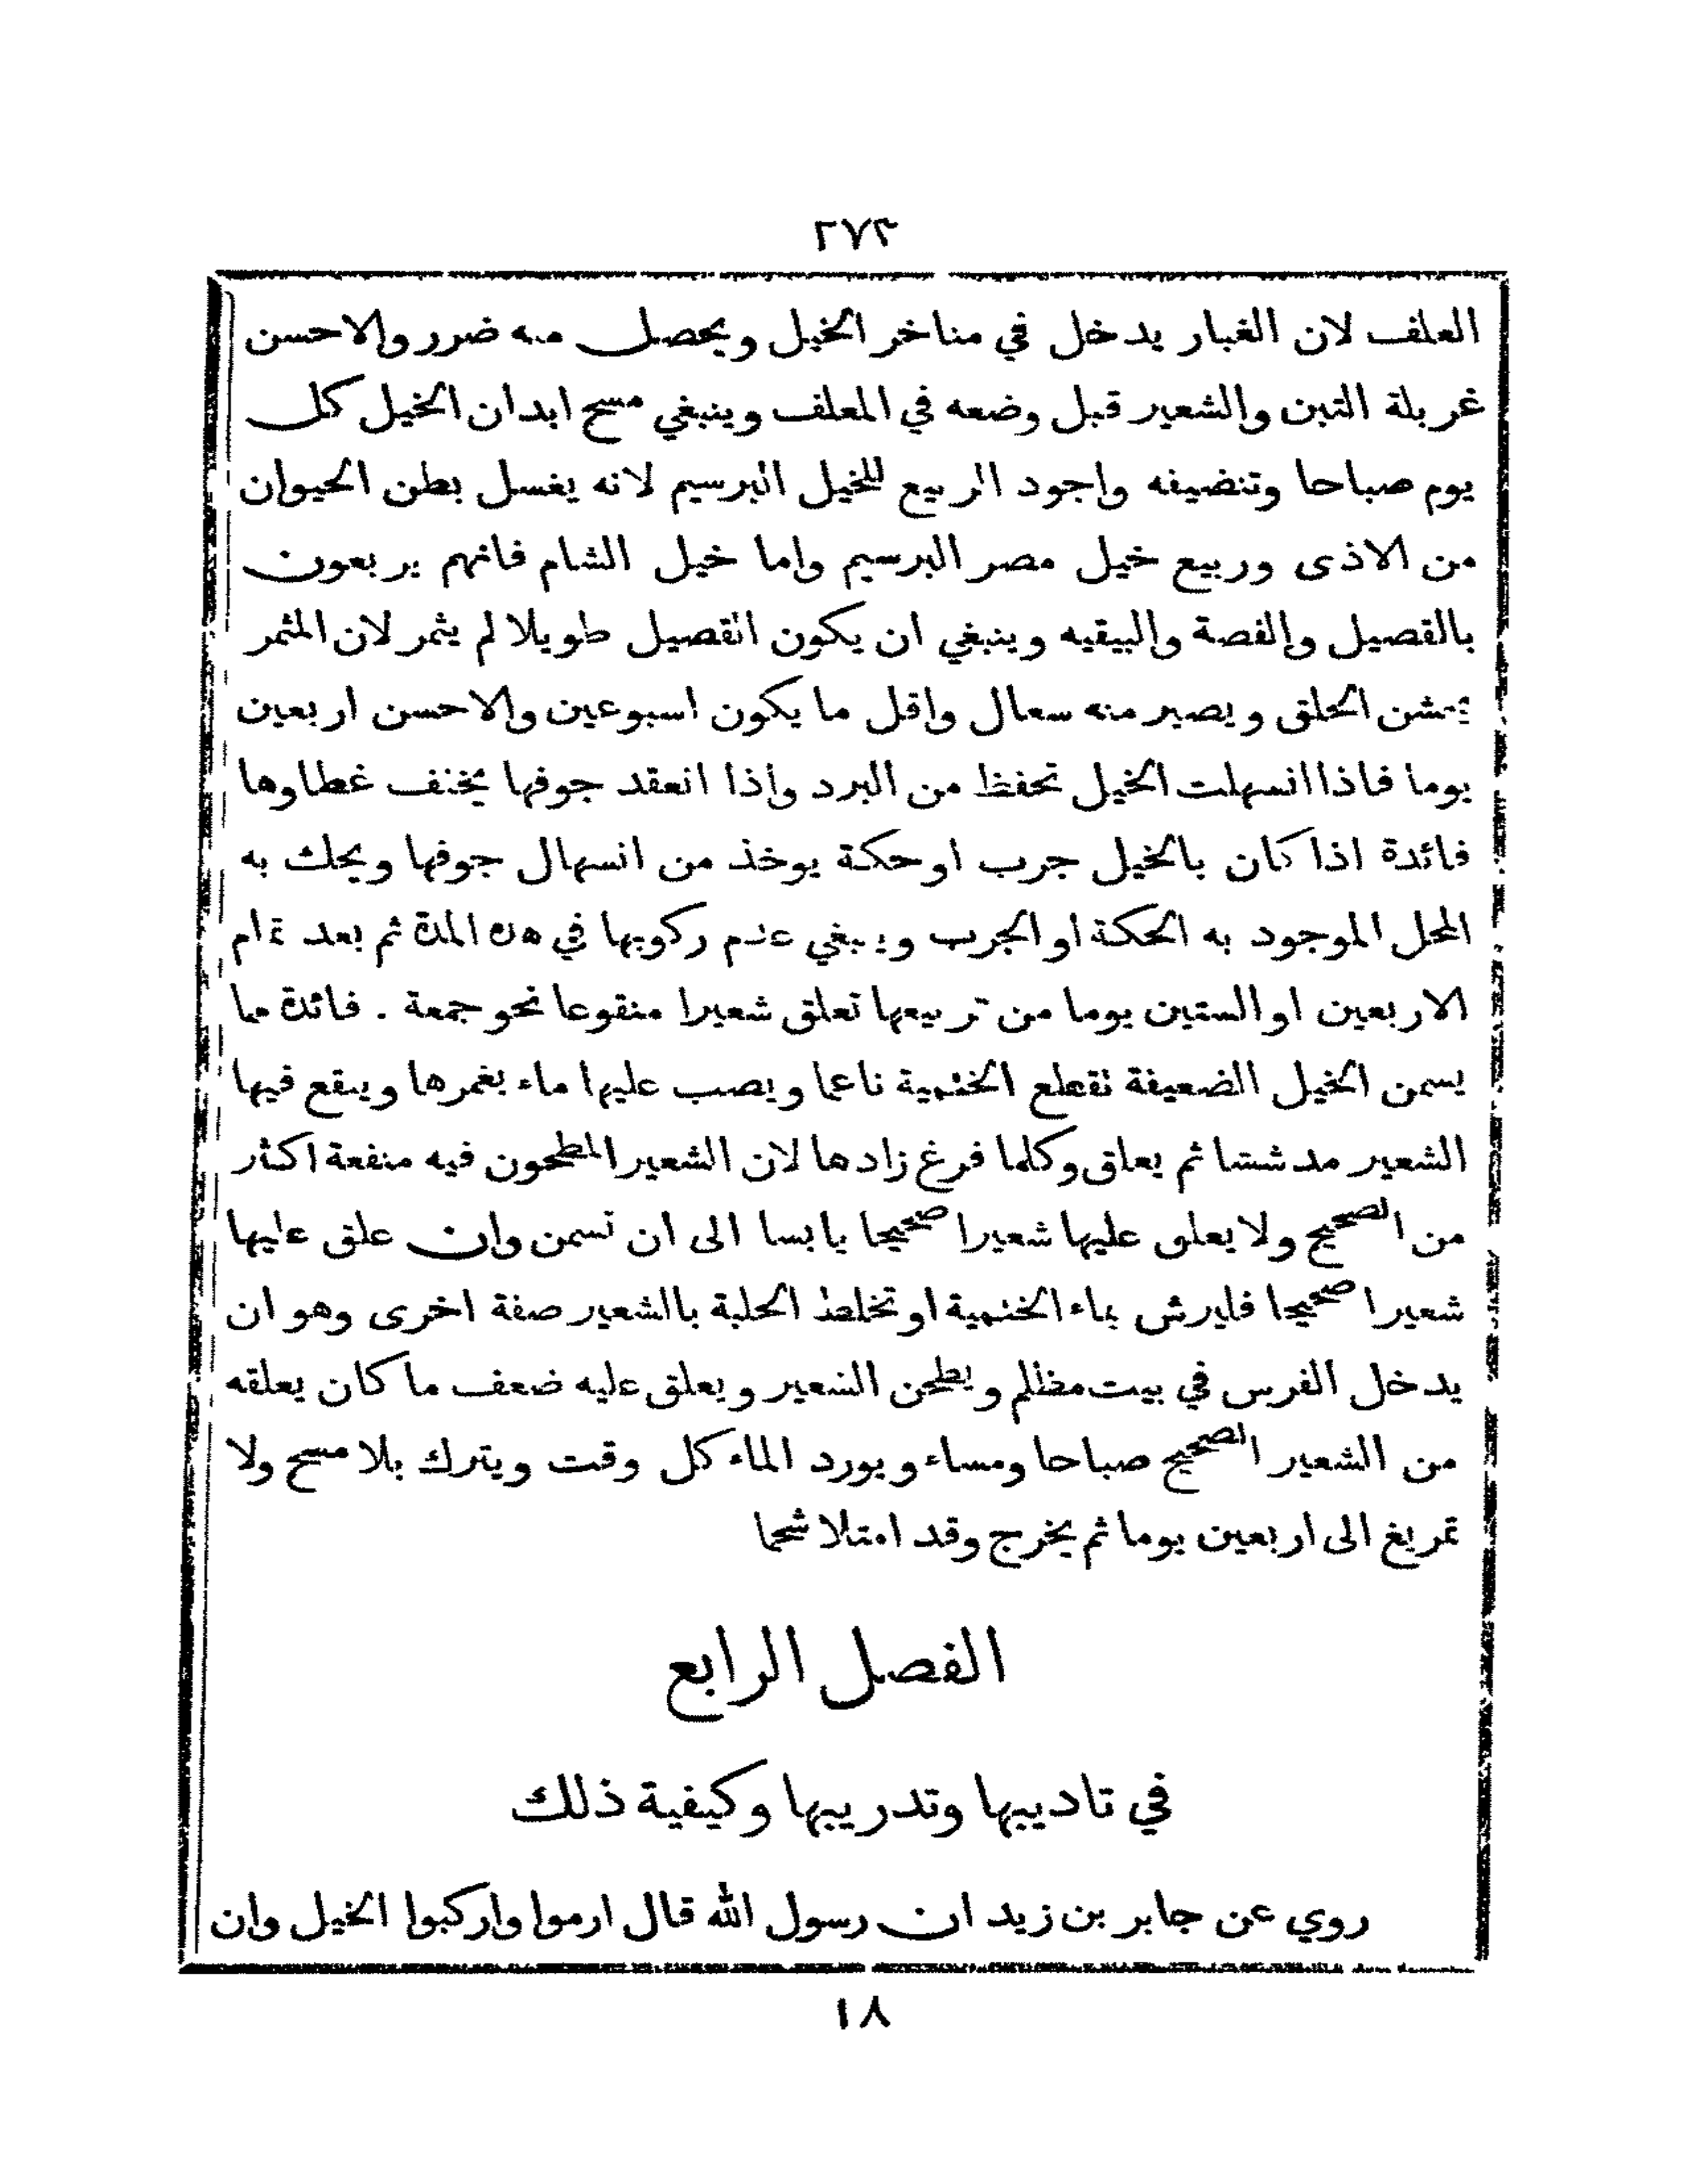 ٢٧٣
العلف لان الغبار يدخل في مناخر الخيل ويحصل منه ضرر والاحسن
غربلة التبن والشعير قبل وضعه في المعلف وينبغي مسح ابدان الخيل كل
يوم صباحا وتنضيفه واجود الربيع للخيل البرسيم لانه يغسل بطن الحيوان
من الاذى وربيع خيل مصر البرسيم واما خيل الشام فانهم يربعون
بالقصيل والفصة والبيقيه وينبغي ان يكون القصيل طويلا لم يثمر لان المثمر
يخشن الحلق ويصير منه سعال واقل ما يكون اسبوعين والاحسن اربعين
يوما فاذا انسهلت الخيل تحفظ من البرد واذا انعقد جوفها يخفف غطاوها
فائدة اذا كان بالخيل جرب او حكة يوخذ من انسهال جوفها ويحك به
المحل الموجود به الحكة او الجرب وينبغي عدم ركوبها في هذه المدة ثم بعد تمام
الاربعين او الستين يوما من تربيعها تعلق شعيرا منقوعا نحو جمعة . فائدة مما
يسمن الخيل الضعيفة تقطع الختمية ناعما ويصب عليها ماء يغمرها وينقع فيها
الشعير مدشتا ثم يعلق وكلما فرغ زادها لان الشعير المطحون فيه منفعة اكثر
من الصحيح ولا يعلق عليها شعيرا صحيحا يابسا الى ان تسمن وان علق عليها
شعيرا صحيحا فليرش بماء الختمية او تخلط الحلبة بالشعير صفة اخرى وهو ان
يدخل الفرس في بيت مظلم ويطحن الشعير ويعلق عليه ضعف ما كان يعلقه
من الشعير الصحيح صباحا ومساء ويورد الماء كل وقت ويترك بلا مسح ولا
تمريغ الى اربعين يوما ثم يخرج وقد امتلا شحما
الفصل الرابع
في تاديبها وتدريبها وكيفية ذلك
روي عن جابر بن زيد ان رسول الله قال ارموا واركبوا الخيل وان
١٨